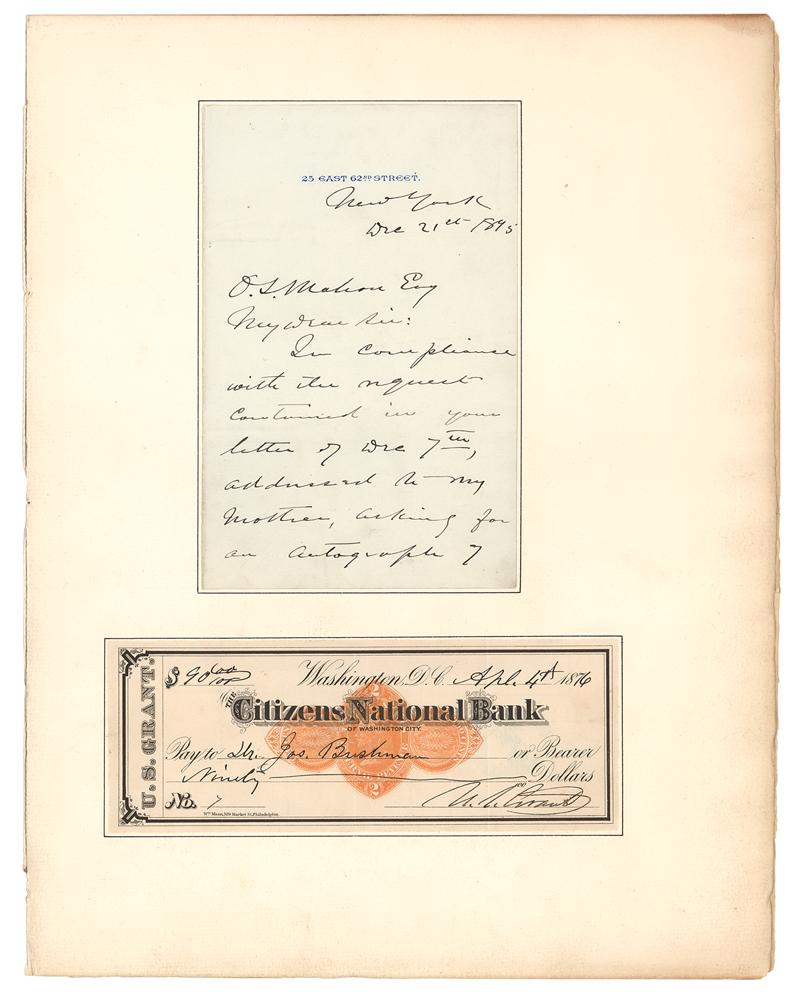 25 EAST 62ND STREET.
New York
Dec 21st 1895
My dear Sir:
In compliance
with the request
contained in your
letter of Dec 7th,
addressed to my
Mother, asking for
an autograph of
U.S. GRANT.
$ 90 00/100 Washington, D.C. Apl. 4th 1876
THE Citizens National Bank
OF WASHINGTON CITY.
Pay to Dr. Jos. Bushman or Bearer
Ninety Dollars
100
No. 7 U. S. Grant
Wm Mann, 529 Market St. Philadelphia